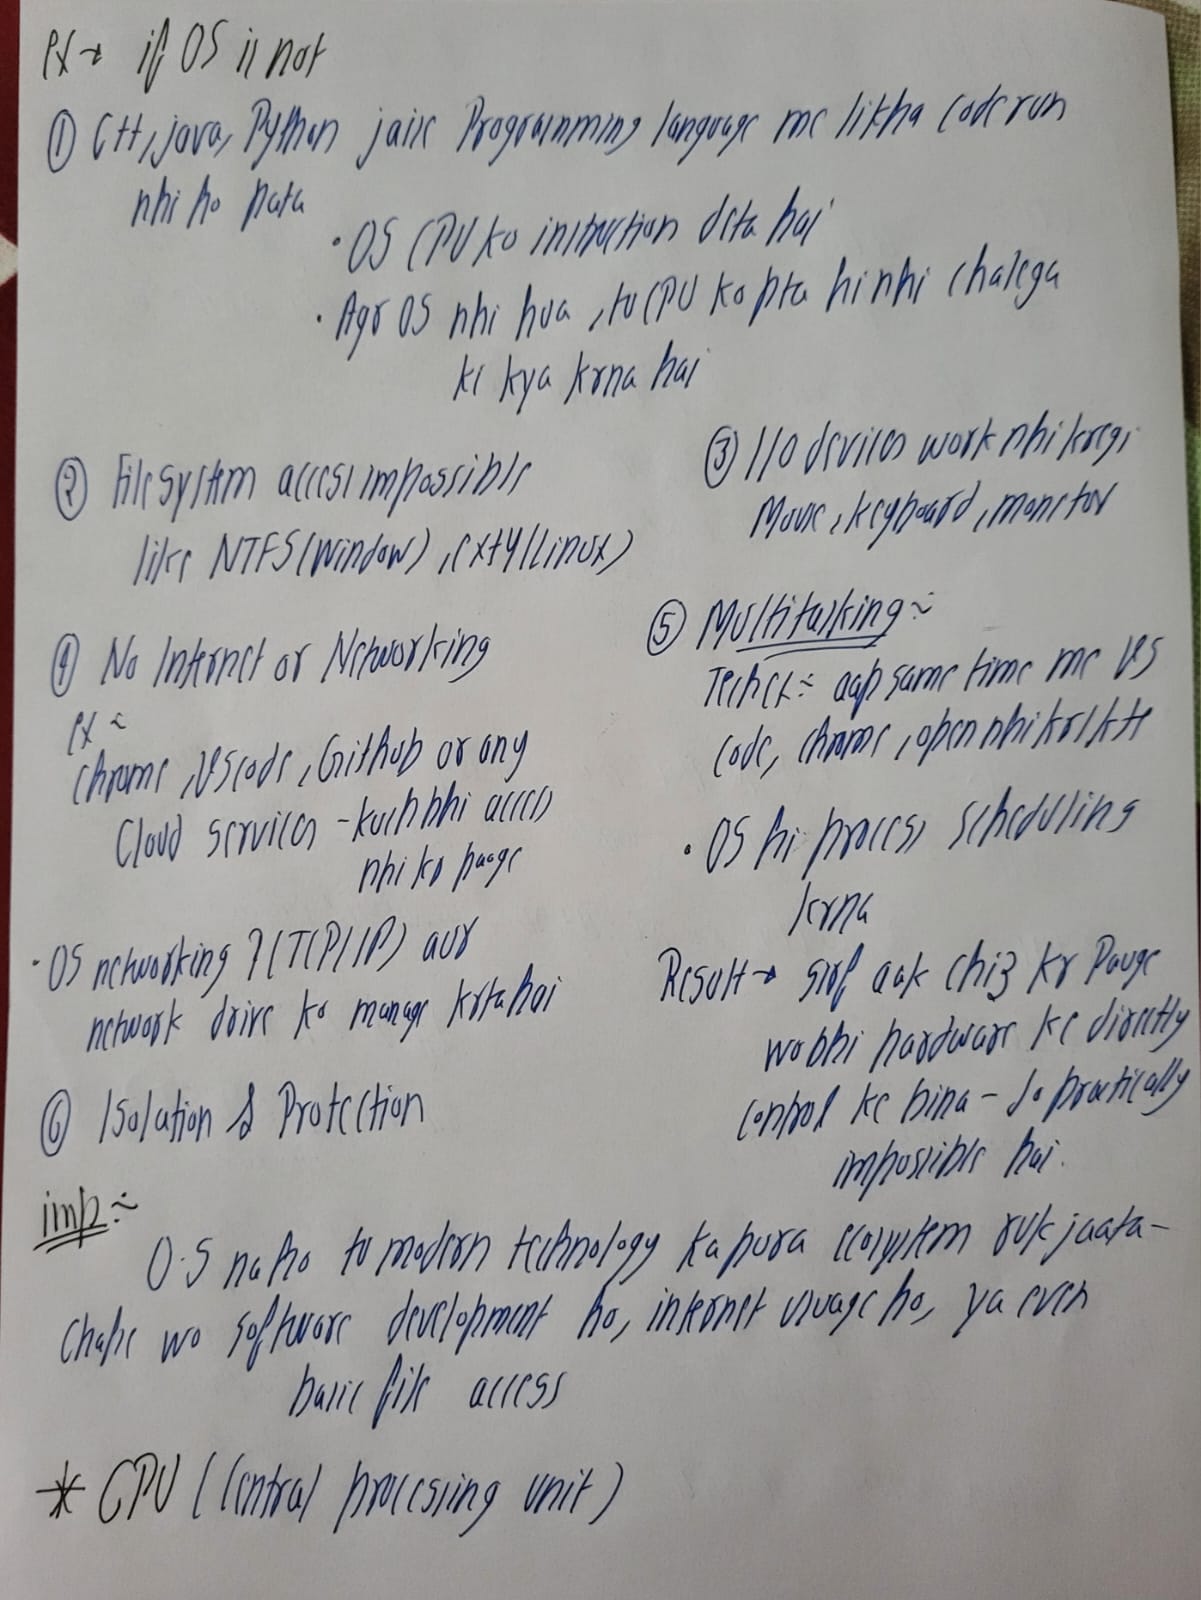 ex → if OS is not
① C++, java, Python jaise Programming language me likha code run
nhi ho pata
• OS CPU ko instruction deta hai
• Agr OS nhi hua, to CPU ko pta hi nhi chalega
ki kya krna hai
② File system access impossible
like NTFS (Window), ext4 (Linux)
③ I/O devices work nhi kregi
Mouse, keyboard, monitor
④ No Internet or Networking
ex :-
chrome, VS code, Github or any
Cloud services - kuch bhi access
nhi kr paoge
• OS networking (TCP/IP) aur
network drive ko manage krta hai
⑤ Multitasking :-
Tech ex :- aap same time me VS
code, chrome, open nhi kr skte
• OS hi process scheduling
krna
Result → sirf aak chiz kr Pauge
wo bhi hardware ke directly
control ke bina - Jo practically
impossible hai.
⑥ Isolation & Protection
imp :-
O.S na ho to modern technology ka pura ecosystem ruk jaata -
Chahe wo software development ho, internet usuage ho, ya even
basic file access
* CPU (Central processing unit)